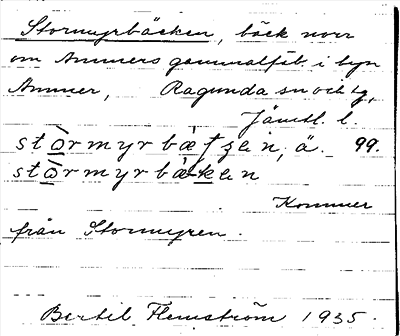 Stormyrbäcken, bäck norr
om Ammers gammalfäb. i byn
Ammer, Ragunda sn och tg,
Jämtl. l.
stòrmyrbæ̀tʃen, ä. 99.
stòrmyrbæ̀ken
Kommer
från Stormyren.
Bertil Flemström 1935.